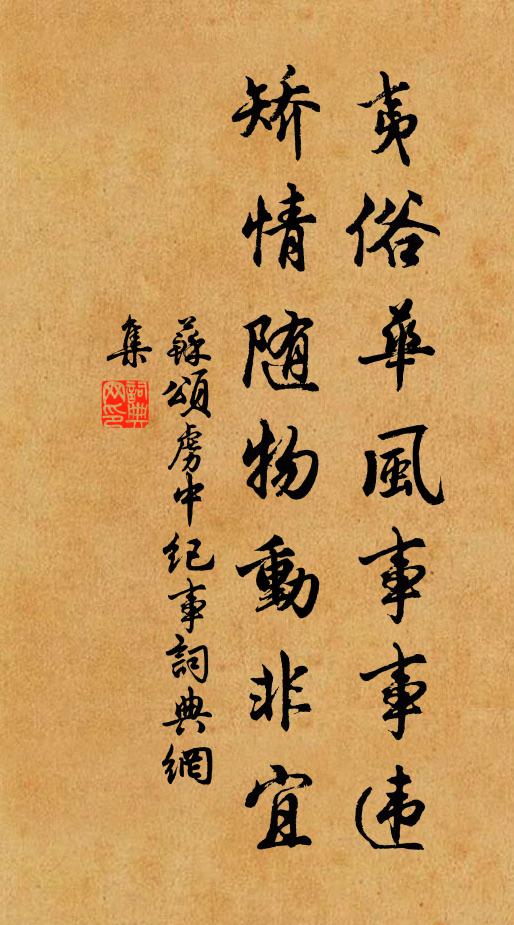 夷俗華風事事违
矫情随物動非宜
蘇頌虜中紀事詞典網
集
詞典
网印